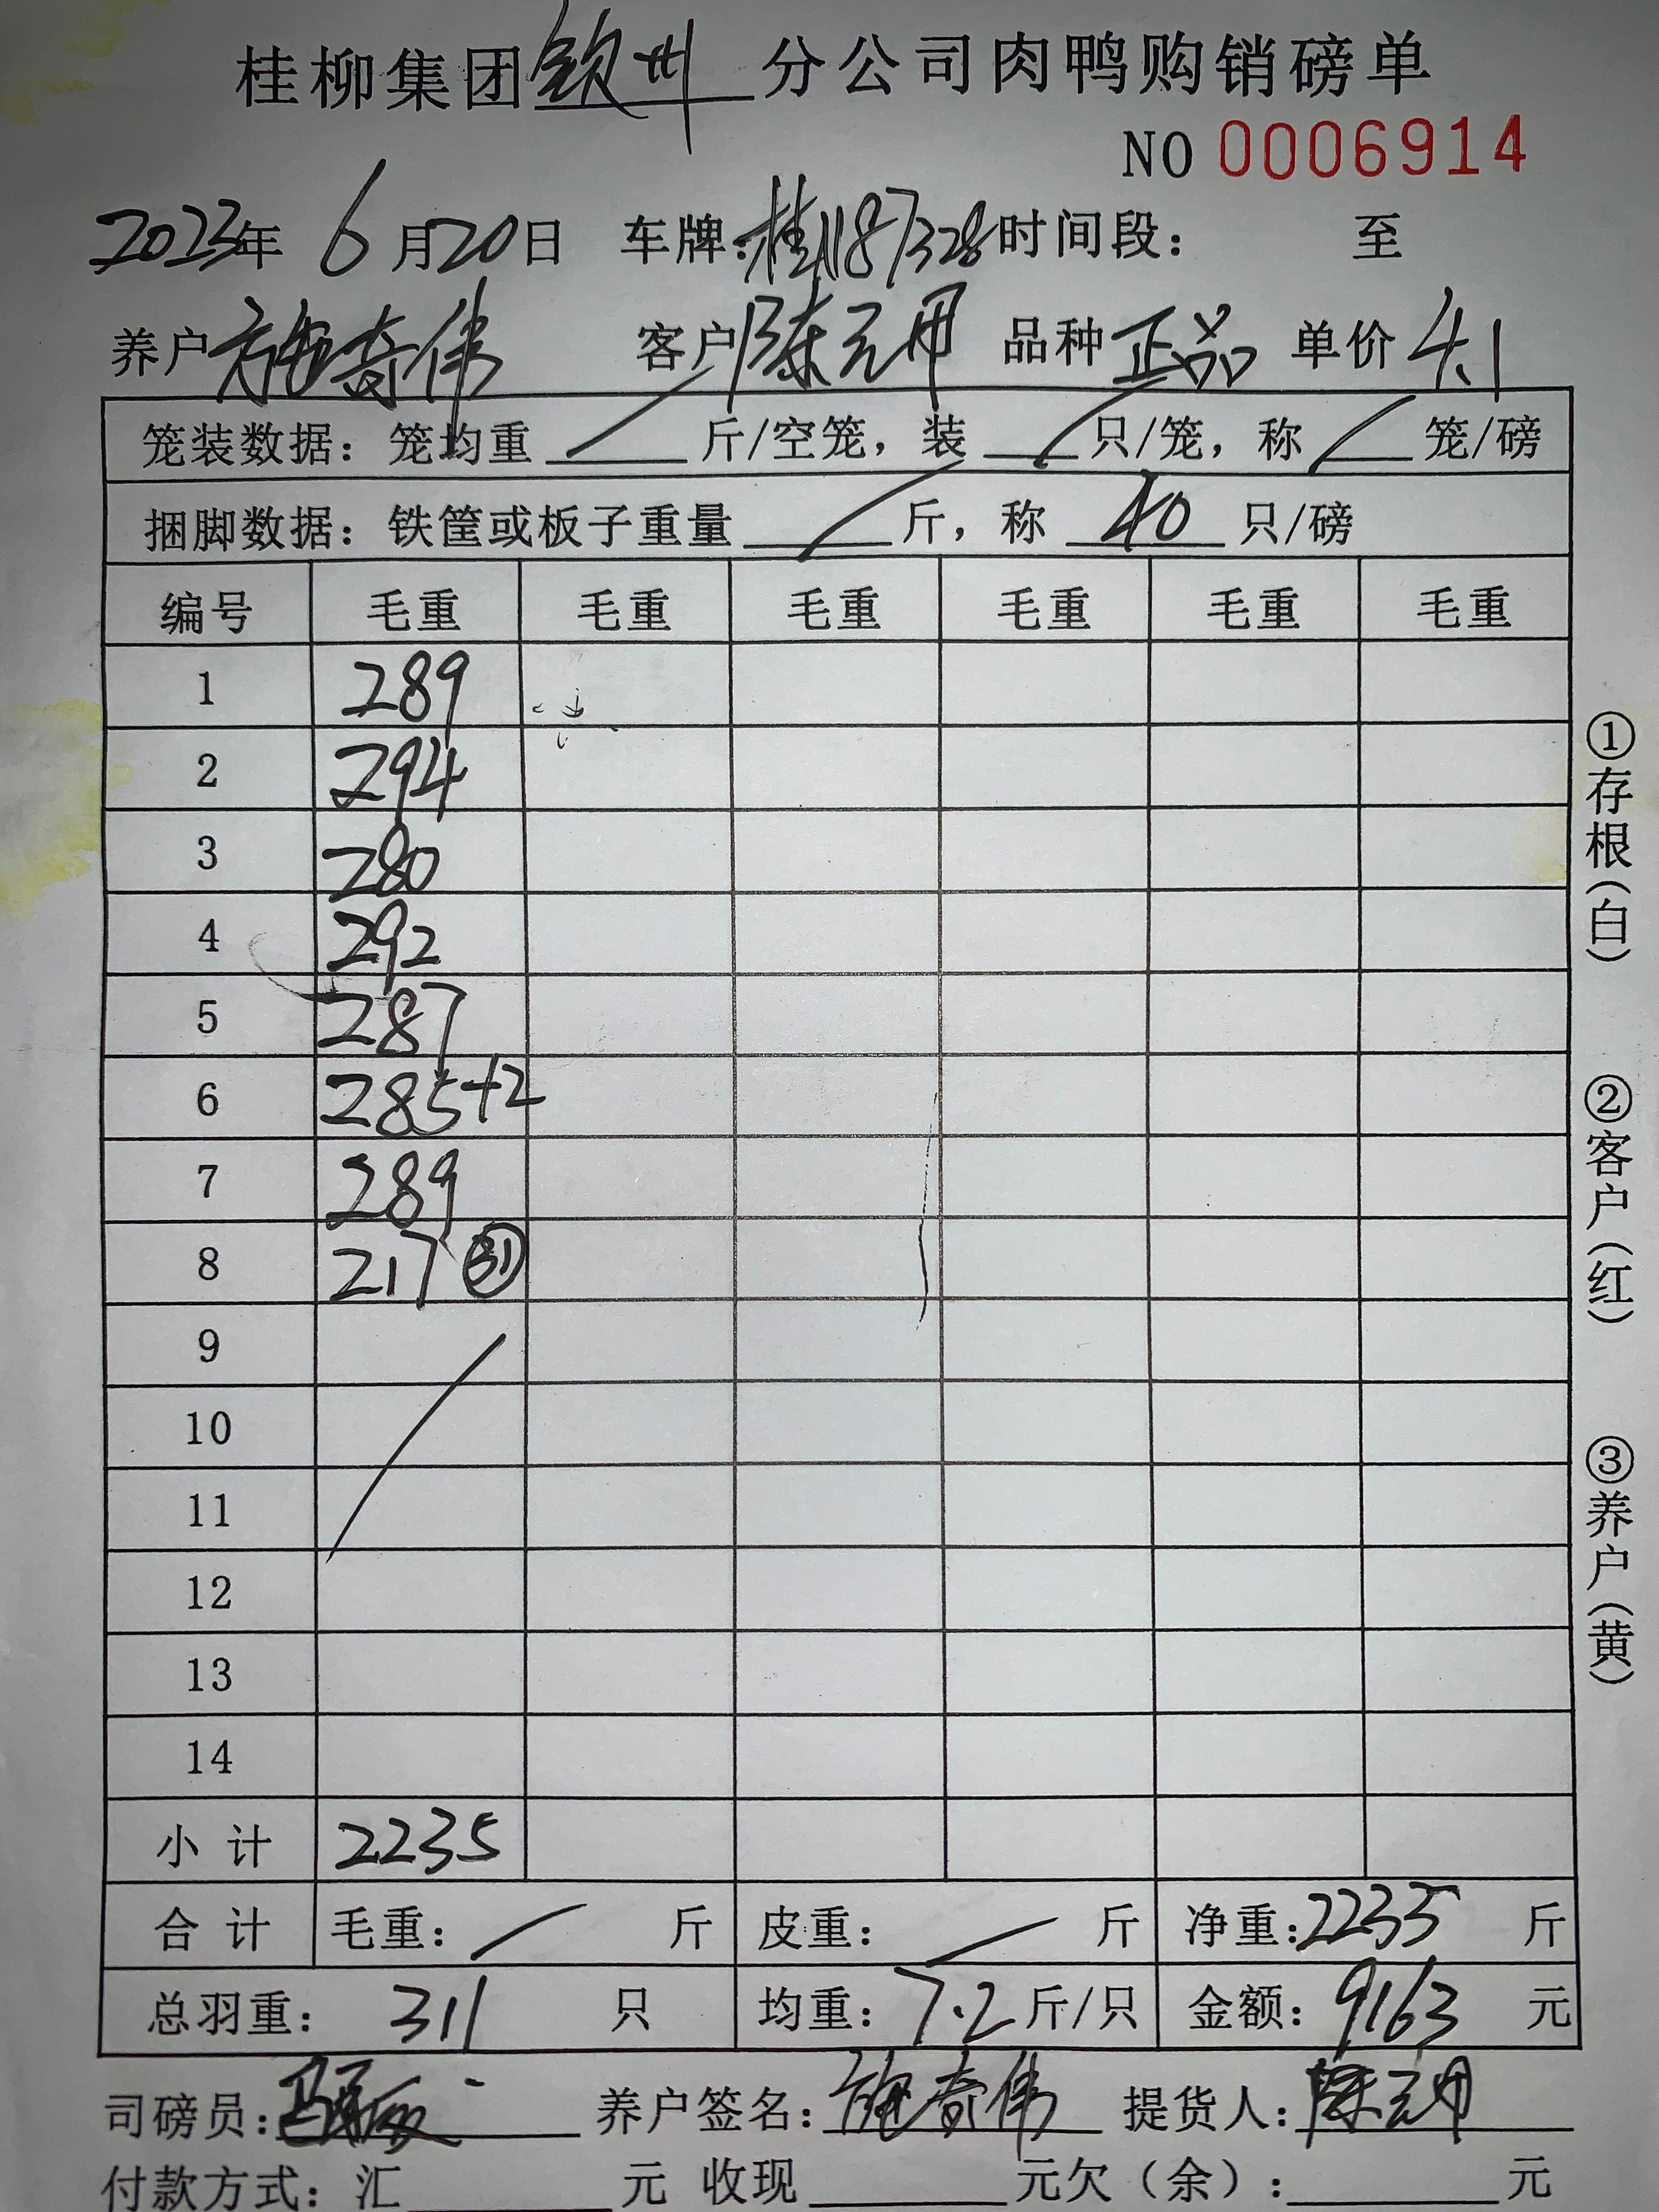 桂柳集团钦州分公司肉鸭购销磅单
NO 0006914
2023年 6月20日 车牌: 时间段: 至
养户施奇伟 客户陈元用 品种正品 单价4.1
笼装数据: 笼均重 斤/空笼, 装 只/笼, 称 笼/磅
捆脚数据: 铁筐或板子重量 斤, 称 40 只/磅
编号 毛重 毛重 毛重 毛重 毛重 毛重
1 289
2 294
3 280
4 292
5 287
6 285+2
7 289
8 217 31
9
10
11
12
13
14
小计 2235
合计 毛重: 斤 皮重: 斤 净重:2235 斤
总羽重: 311 只 均重: 7.2斤/只 金额: 9163 元
司磅员: 养户签名: 施奇伟 提货人: 陈元用
付款方式: 汇 元 收现 元欠(余): 元
①存根(白)
②客户(红)
③养户(黄)